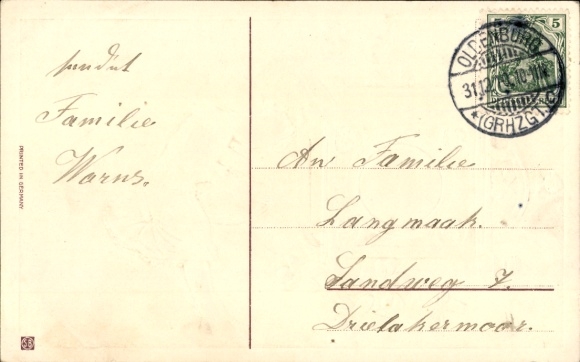 sendet
Familie
Warns.
PRINTED IN GERMANY
5
OLDENBURG
31.12.
10-11
*(GRHZGT.)
An Familie
Langmaak.
Sandweg 7.
Drielakermoor.